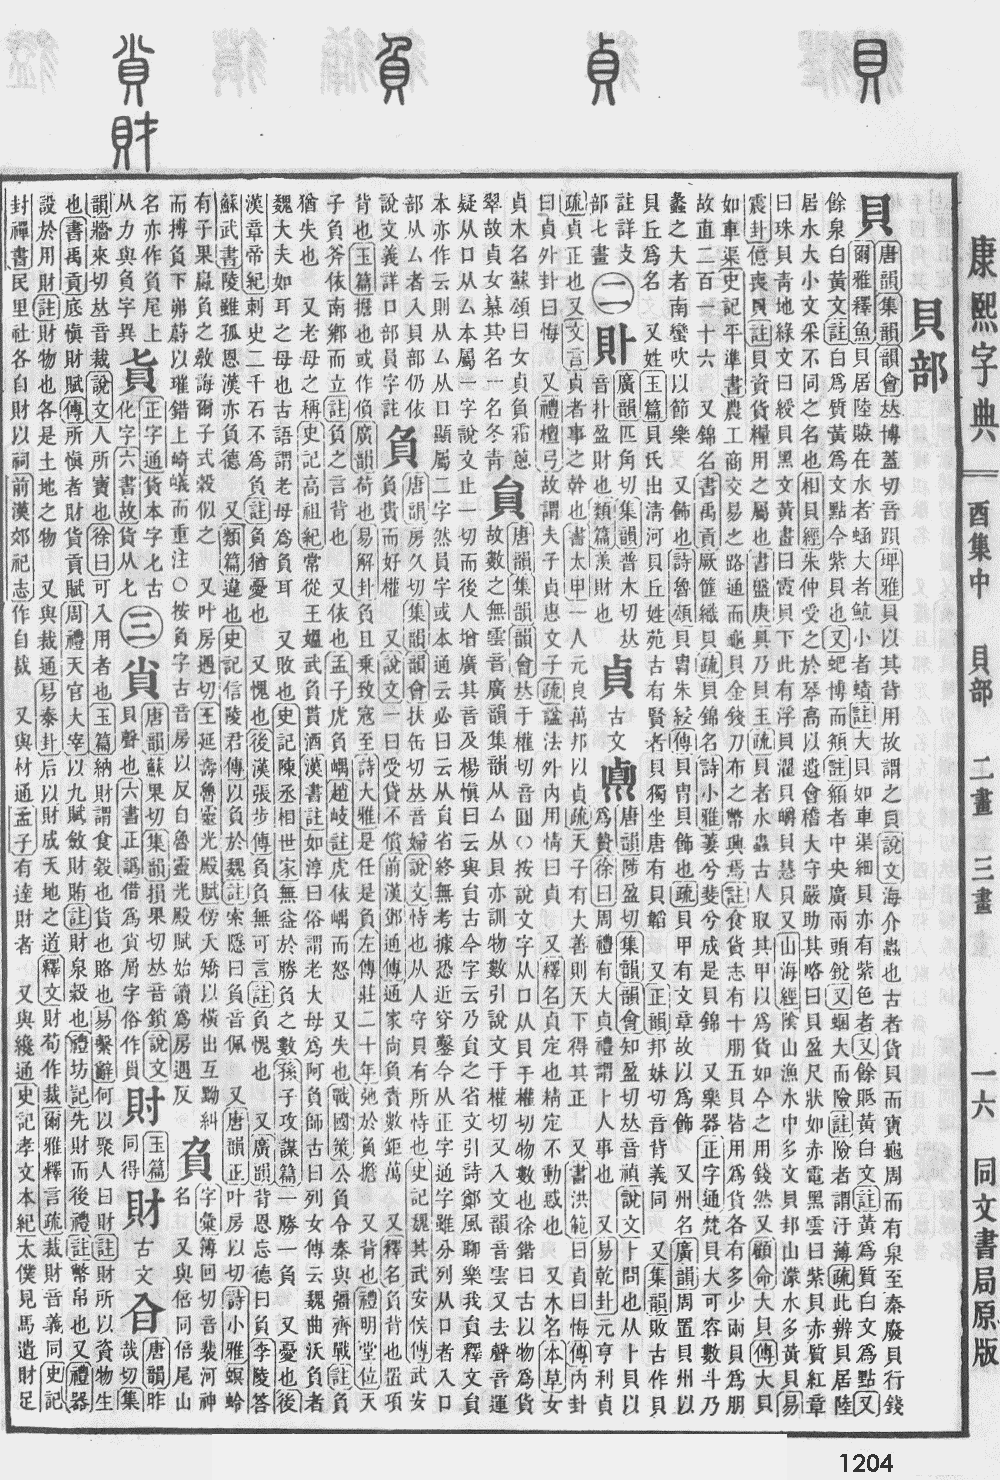 貝 貞 負 𧴪 財
康熙字典
酉集中 貝部 二畫 三畫
一六 同文書局原版
貝部
貝 唐韻集韻韻會𠀤博蓋切音跟埤雅貝以其背用故謂之貝說文海介蟲也古者貨貝而寶龜周而有泉至秦廢貝行錢
爾雅釋魚貝居陸贆在水者蜬大者魧小者鰿註大貝如車渠細貝亦有紫色者又餘貾黃白文註黃爲質白文爲點又
餘泉白黃文註白爲質黃爲文點今紫貝也又蚆博而頯註頯者中央廣兩頭銳又蜠大而險註險者謂汙薄疏此辨貝居陸
居水大小文采不同之名也相貝經朱仲受之於琴高以遺會稽大守嚴助其略曰貝盈尺狀如赤電黑雲曰紫貝赤質紅章
曰珠貝靑地綠文曰綬貝黑文黃畫曰霞貝下此有浮貝濯貝㬭貝慧貝又山海經陰山漁水中多文貝邦山濛水多黃貝易
震卦億喪貝註貝資貨糧用之屬也書盤庚具乃貝玉疏貝者水蟲古人取其甲以爲貨如今之用錢然又顧命大貝傳大貝
如車渠史記平準書農工商交易之路通而龜貝金錢刀布之幣興焉註食貨志有十朋五貝皆用爲貨各有多少兩貝爲朋
故直二百一十六 又錦名書禹貢厥篚織貝疏貝錦名詩小雅萋兮斐兮成是貝錦 又樂器正字通梵貝大可容數斗乃
蠡之大者南蠻吹以節樂 又飾也詩魯頌貝冑朱綅傳貝冑貝飾也疏貝甲有文章故以爲飾 又州名廣韻周置貝州以
貝丘爲名 又姓玉篇貝氏出淸河貝丘姓苑古有賢者貝獨坐唐有貝韜 又正韻邦妹切音背義同 又集韻敗古作貝
註詳攴部七畫
二 䝬 廣韻匹角切集韻普木切𠀤音扑盈財也類篇羨財也
貞 古文𠁩 唐韻陟盈切集韻韻會知盈切𠀤音禎說文卜問也从卜貝以爲贄徐曰周禮有大貞禮謂卜人事也 又易乾卦元亨利貞
疏貞正也又文言貞者事之幹也書太甲一人元良萬邦以貞疏天子有大善則天下得其正 又書洪範曰貞曰悔傳內卦
曰貞外卦曰悔 又禮檀弓故謂夫子貞惠文子疏諡法外內用情曰貞 又釋名貞定也精定不動惑也 又木名本草女
貞木名蘇頌曰女貞負霜蔥翠故貞女慕其名一名冬靑
負 唐韻集韻韻會𠀤于權切音圓○按說文字从口从貝于權切物數也徐鍇曰古以物爲貨
故數之無雲音廣韻集韻从厶从貝亦訓物數引說文于權切又入文韻音雲又去聲音運
疑从口从厶本屬一字說文止一切而後人增廣其音及楊愼曰云與貟古今字云乃貟之省文引詩鄭風聊樂我貟釋文貟
本亦作云則从厶从口顯屬二字然員字或本通云必曰云从貟省終無考據恐近穿鑿今从正字通字雖分列从口者入口
部从厶者入貝部仍依說文義詳口部員字註
負 唐韻房久切集韻韻會扶缶切𠀤音婦說文恃也从人守貝有所恃也史記魏其武安侯傳武安負貴而好權 又說文一曰受貸不償前漢鄧通傳通家尚負責數鉅萬 又釋名負背也置項
背也玉篇擔也或作偩廣韻荷也易解卦負且乗致寇至詩大雅是任是負左傳莊二十年弛於負擔 又背也禮明堂位天
子負斧依南鄕而立註負之言背也 又依也孟子虎負嵎趙岐註虎依嵎而怒 又失也戰國策公負令秦與彊齊戰註負
猶失也 又老母之稱史記高祖紀常從王媼武負貰酒漢書註如淳曰俗謂老大母爲阿負師古曰列女傳云魏曲沃負者
魏大夫如耳之母也古語謂老母爲負耳 又敗也史記陳丞相世家無益於勝負之數孫子攻謀篇一勝一負 又憂也後
漢章帝紀刺史二千石不爲負註負猶憂也 又愧也後漢張步傳負負無可言註負愧也 又廣韻背恩忘德曰負李陵答
蘇武書陵雖孤恩漢亦負德 又類篇違也史記信陵君傳以負於魏註索隱曰負音佩 又唐韻正叶房以切詩小雅螟蛉
有子果蠃負之敎誨爾子式穀似之 又叶房遇切王延壽魯靈光殿賦傍夭矯以橫出互黝糾
而搏負下岪蔚以璀錯上崎嶬而重注○按負字古音房以反自魯靈光殿賦始讀爲房遇反
負 字彙簿回切音裴河神名 又與倍同倍尾山名亦作負尾上从力與負字異
𧴦 正字通貨本字北古化字六書故貨从七
三 𧴪 唐韻蘇果切集韻損果切𠀤音鎖說文貝聲也六書正譌借爲𧴪屑字俗作貟
財 玉篇同得
財 古文 唐韻昨哉切集韻牆來切𠀤音裁說文人所寶也徐曰可入用者也玉篇納財謂食穀也貨也賂也易繫辭何以聚人曰財註財所以資物生
也書禹貢底愼財賦傳所愼者財貨貢賦周禮天官大宰以九賦斂財賄註財泉穀也禮坊記先財而後禮註幣帛也又禮器
設於用財註財物也各是土地之物 又與裁通易泰卦后以財成天地之道釋文財荀作裁爾雅釋言疏裁財音義同史記
封禪書民里社各自財以祠前漢郊祀志作自裁 又與材通孟子有達財者 又與纔通史記孝文本紀太僕見馬遺財足
1204